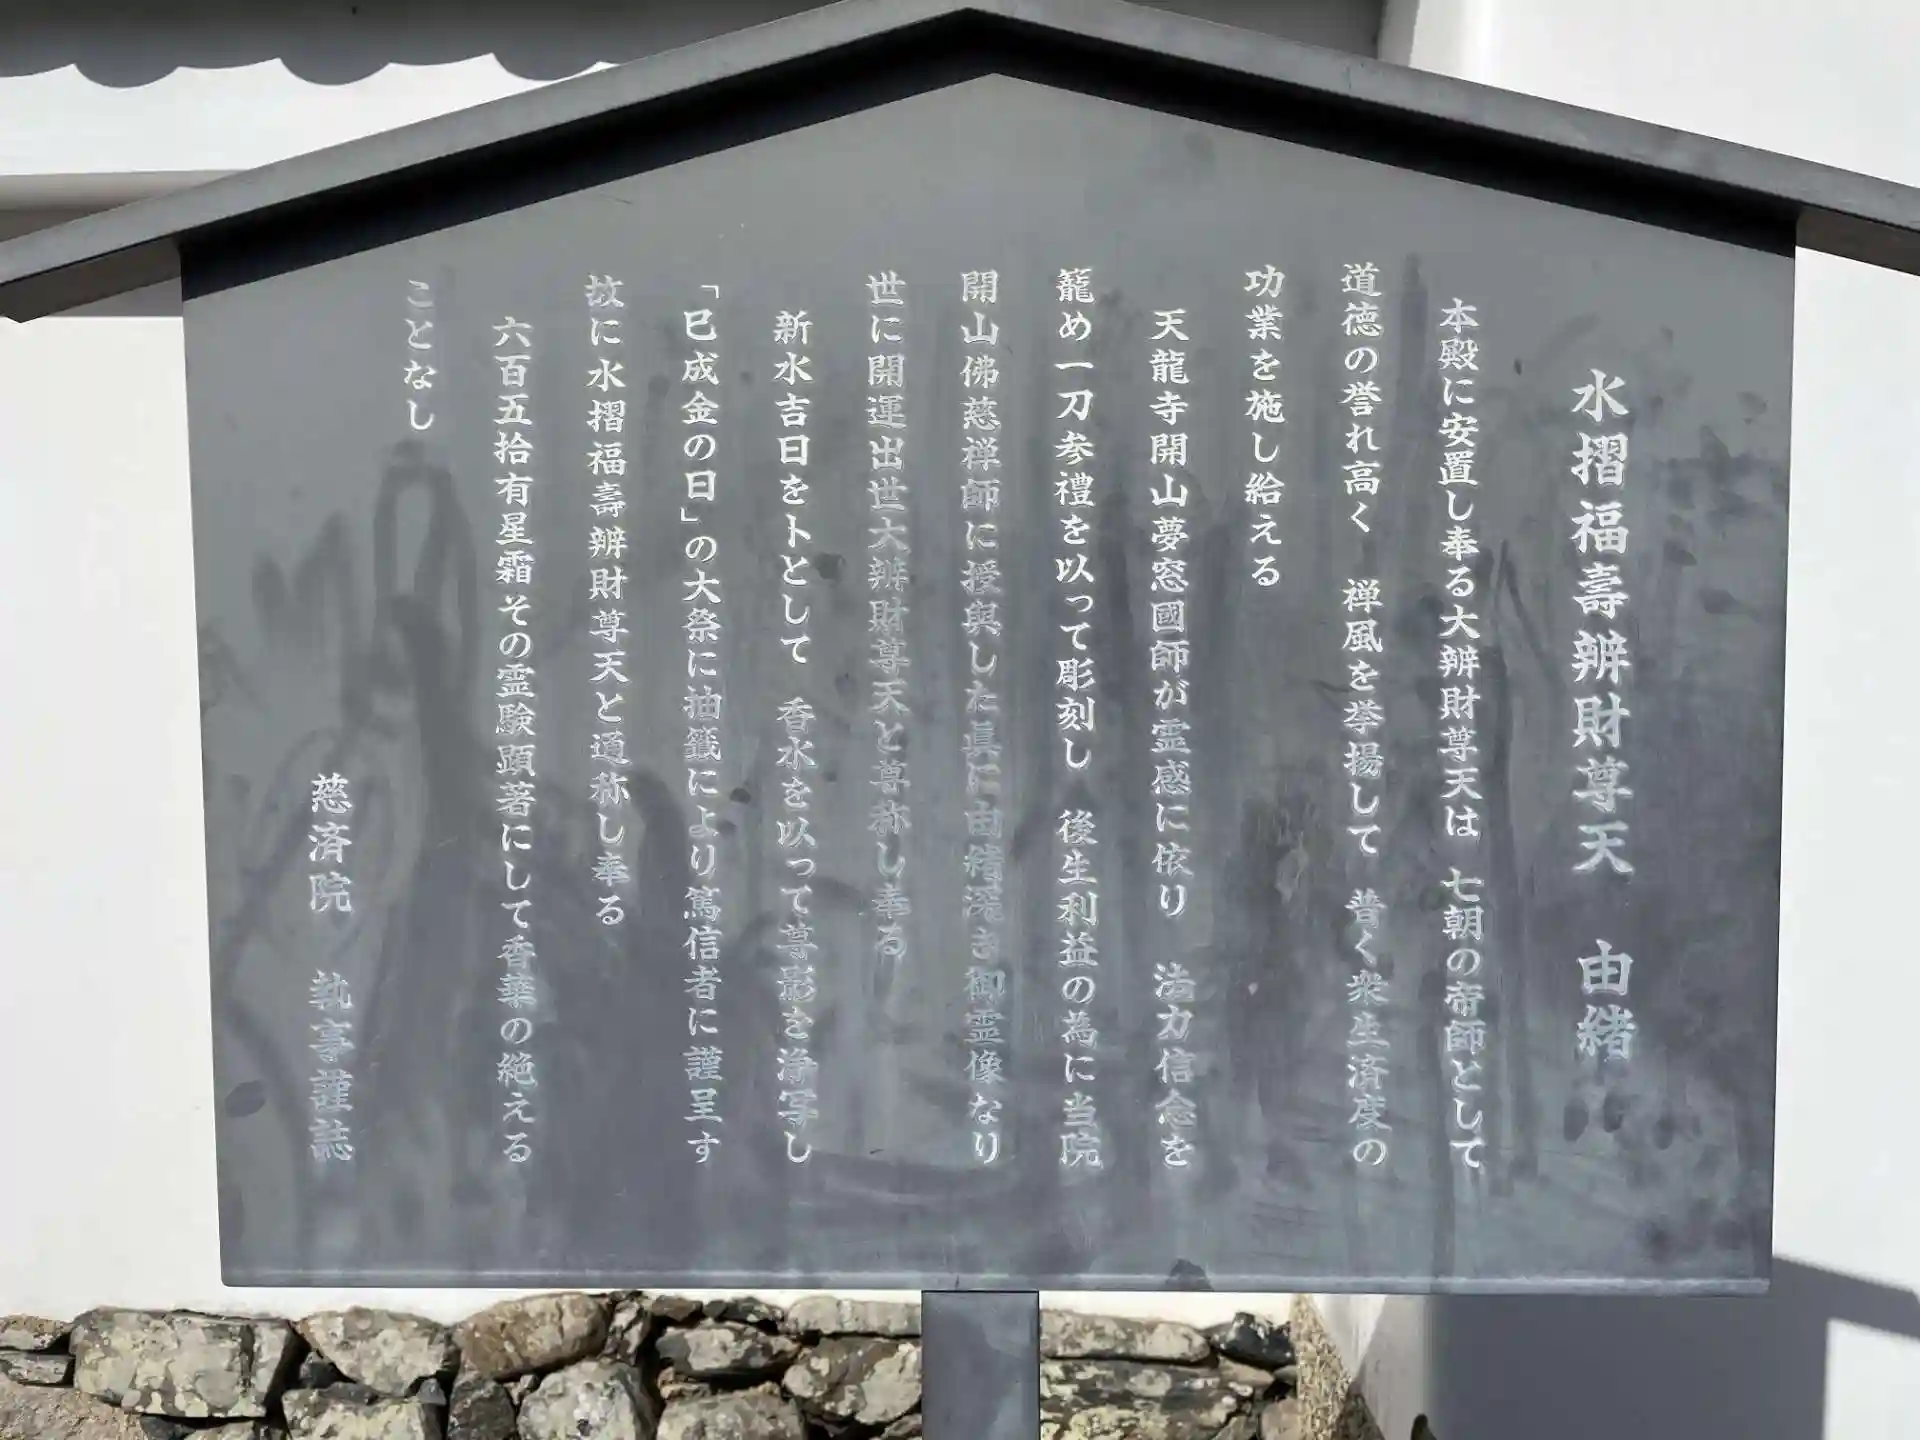 水摺福壽辨財尊天　由緒
本殿に安置し奉る大辨財尊天は 七朝の帝師として
道徳の誉れ高く 禅風を挙揚して 普く衆生済度の
功業を施し給える
天龍寺開山夢窓國師が霊感に依り 法力信念を
籠め一刀参禮を以って彫刻し 後生利益の為に当院
開山佛慈禅師に授與した眞に由緒深き御霊像なり
世に開運出世大辨財尊天と尊称し奉る
新水吉日を卜として 香水を以って尊影を浄写し
「巳成金の日」の大祭に抽籤により篤信者に謹呈す
故に水摺福壽辨財尊天と通称し奉る
六百五拾有星霜その霊験顕著にして香華の絶える
ことなし
慈済院　執事謹誌